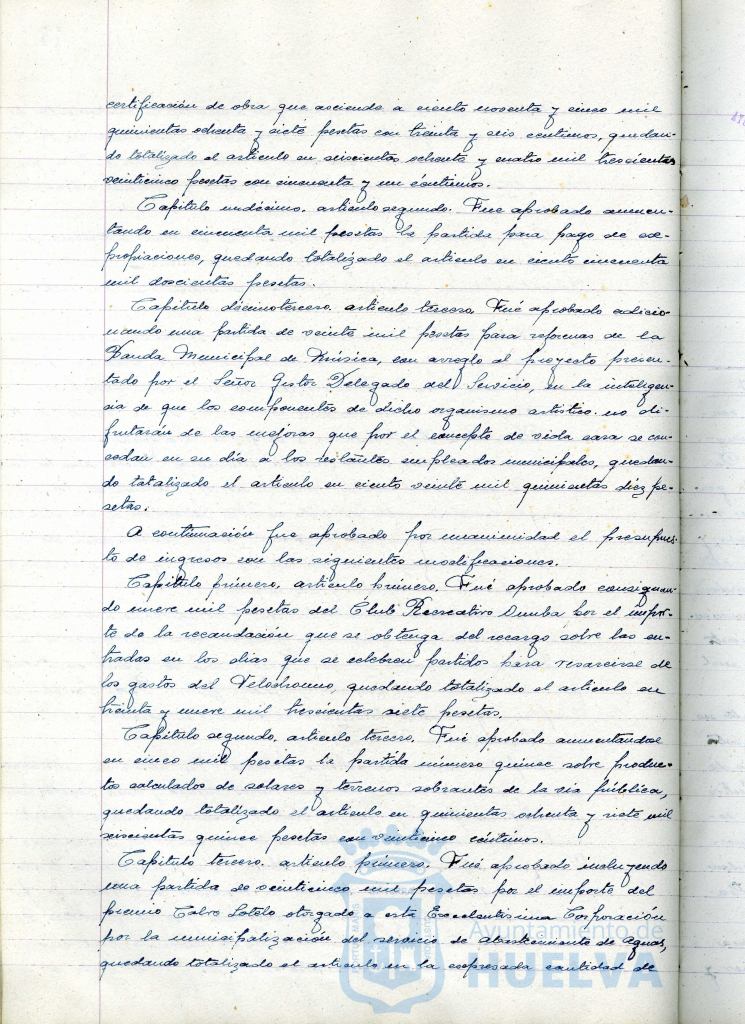 certificación de obra que asciende a ciento noventa y cinco mil
quinientas ochenta y siete pesetas con treinta y seis centimos, quedan-
do totalizado el artículo en seiscientas ochenta y cuatro mil trescientas
veinticinco pesetas con cincuenta y un céntimos.
Capítulo undécimo. artículo segundo. Fue aprobado aumen-
tando en cincuenta mil pesetas la partida para pago de ex-
propiaciones, quedando totalizado el artículo en ciento cincuenta
mil doscientas pesetas.
Capítulo décimotercero. artículo tercero. Fué aprobado adicio-
nando una partida de veinte mil pesetas para reformas de la
Banda Municipal de Música, con arreglo al proyecto presen-
tado por el Señor Gestor Delegado del Servicio, en la inteligen-
cia de que los componentes de dicho organismo artístico no di-
frutarán de las mejoras que por el concepto de vida cara se con-
cedan en su día a los restantes empleados municipales, quedan-
do totalizado el artículo en ciento veinte mil quinientas diez pe-
setas.
A continuación fue aprobado por unanimidad el presupues-
to de ingresos con las siguientes modificaciones.
Capítulo primero, artículo primero. Fué aprobado consignan-
do nueve mil pesetas del Club Recreativo Onuba por el impor-
te de la recaudación que se obtenga del recargo sobre las en-
tradas en los días que se celebren partidos para resarcirse de
los gastos del Velodromo, quedando totalizado el artículo en
treinta y nueve mil trescientas siete pesetas.
Capítulo segundo. artículo tercero. Fué aprobado aumentandose
en cinco mil pesetas la partida número quince sobre produc-
tos calculados de solares y terrenos sobrantes de la vía pública,
quedando totalizado el artículo en quinientas ochenta y siete mil
seiscientas quince pesetas con veinticinco céntimos.
Capítulo tercero. artículo primero. Fué aprobado incluyendo
una partida de veinticinco mil pesetas por el importe del
premio Calvo Sotelo otorgado a esta Excelentísima Corporación
por la municipalización del servicio de Abastecimiento de Aguas,
quedando totalizado el artículo en la expresada cantidad de
Ayuntamiento de
HUELVA